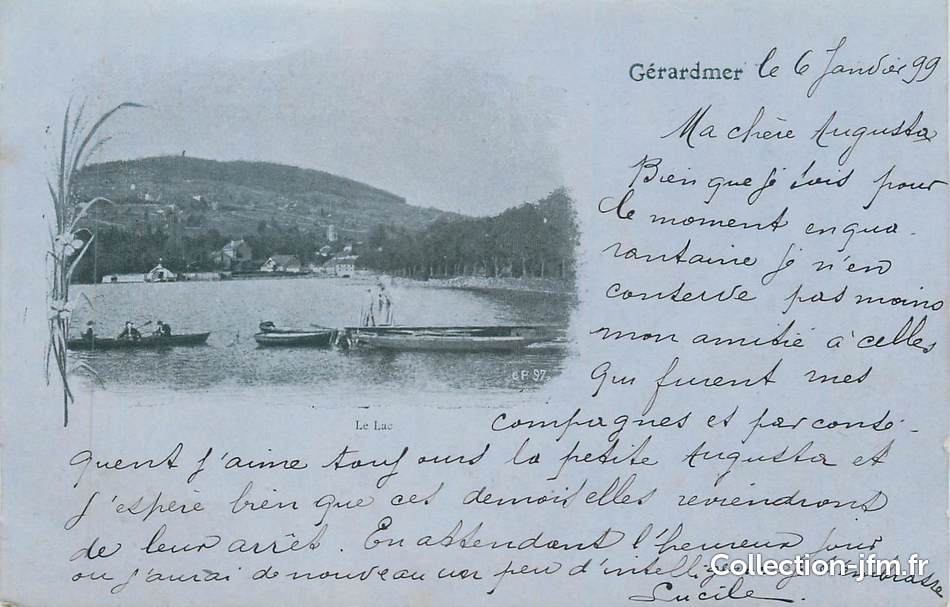 Gérardmer le 6 Janvier 99
Ma chère Augusta
Bien que je sois pour
le moment en qua-
rantaine je n'en
conserve pas moins
mon amitié à celles
qui furent mes
6 F 97
Le Lac
compagnes et par consé-
quent j'aime toujours la petite Augusta et
j'espère bien que ces demoiselles reviendront
de leur arrêt. En attendant l'heureux jour
ou j'aurai de nouveau un peu d'intellig embrasse
Collection-jfm.fr
Lucile.